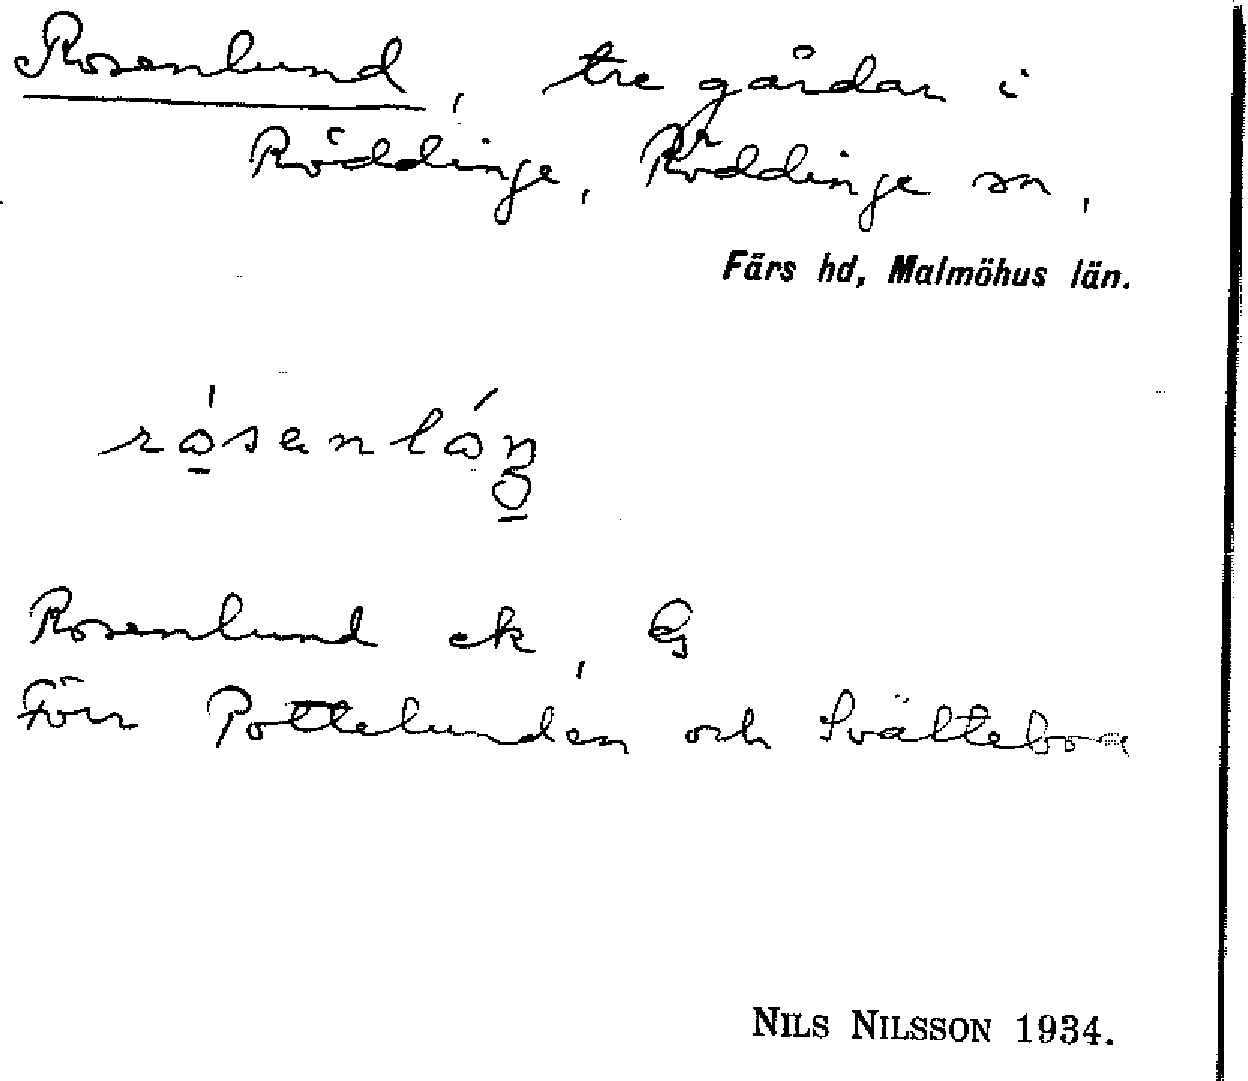 Rosenlund, tre gårdar i
Röddinge, Röddinge sn,
Färs hd, Malmöhus län.
Rosenlund ek, G
Förr Pottelunden och Svältebora
NILS NILSSON 1934.